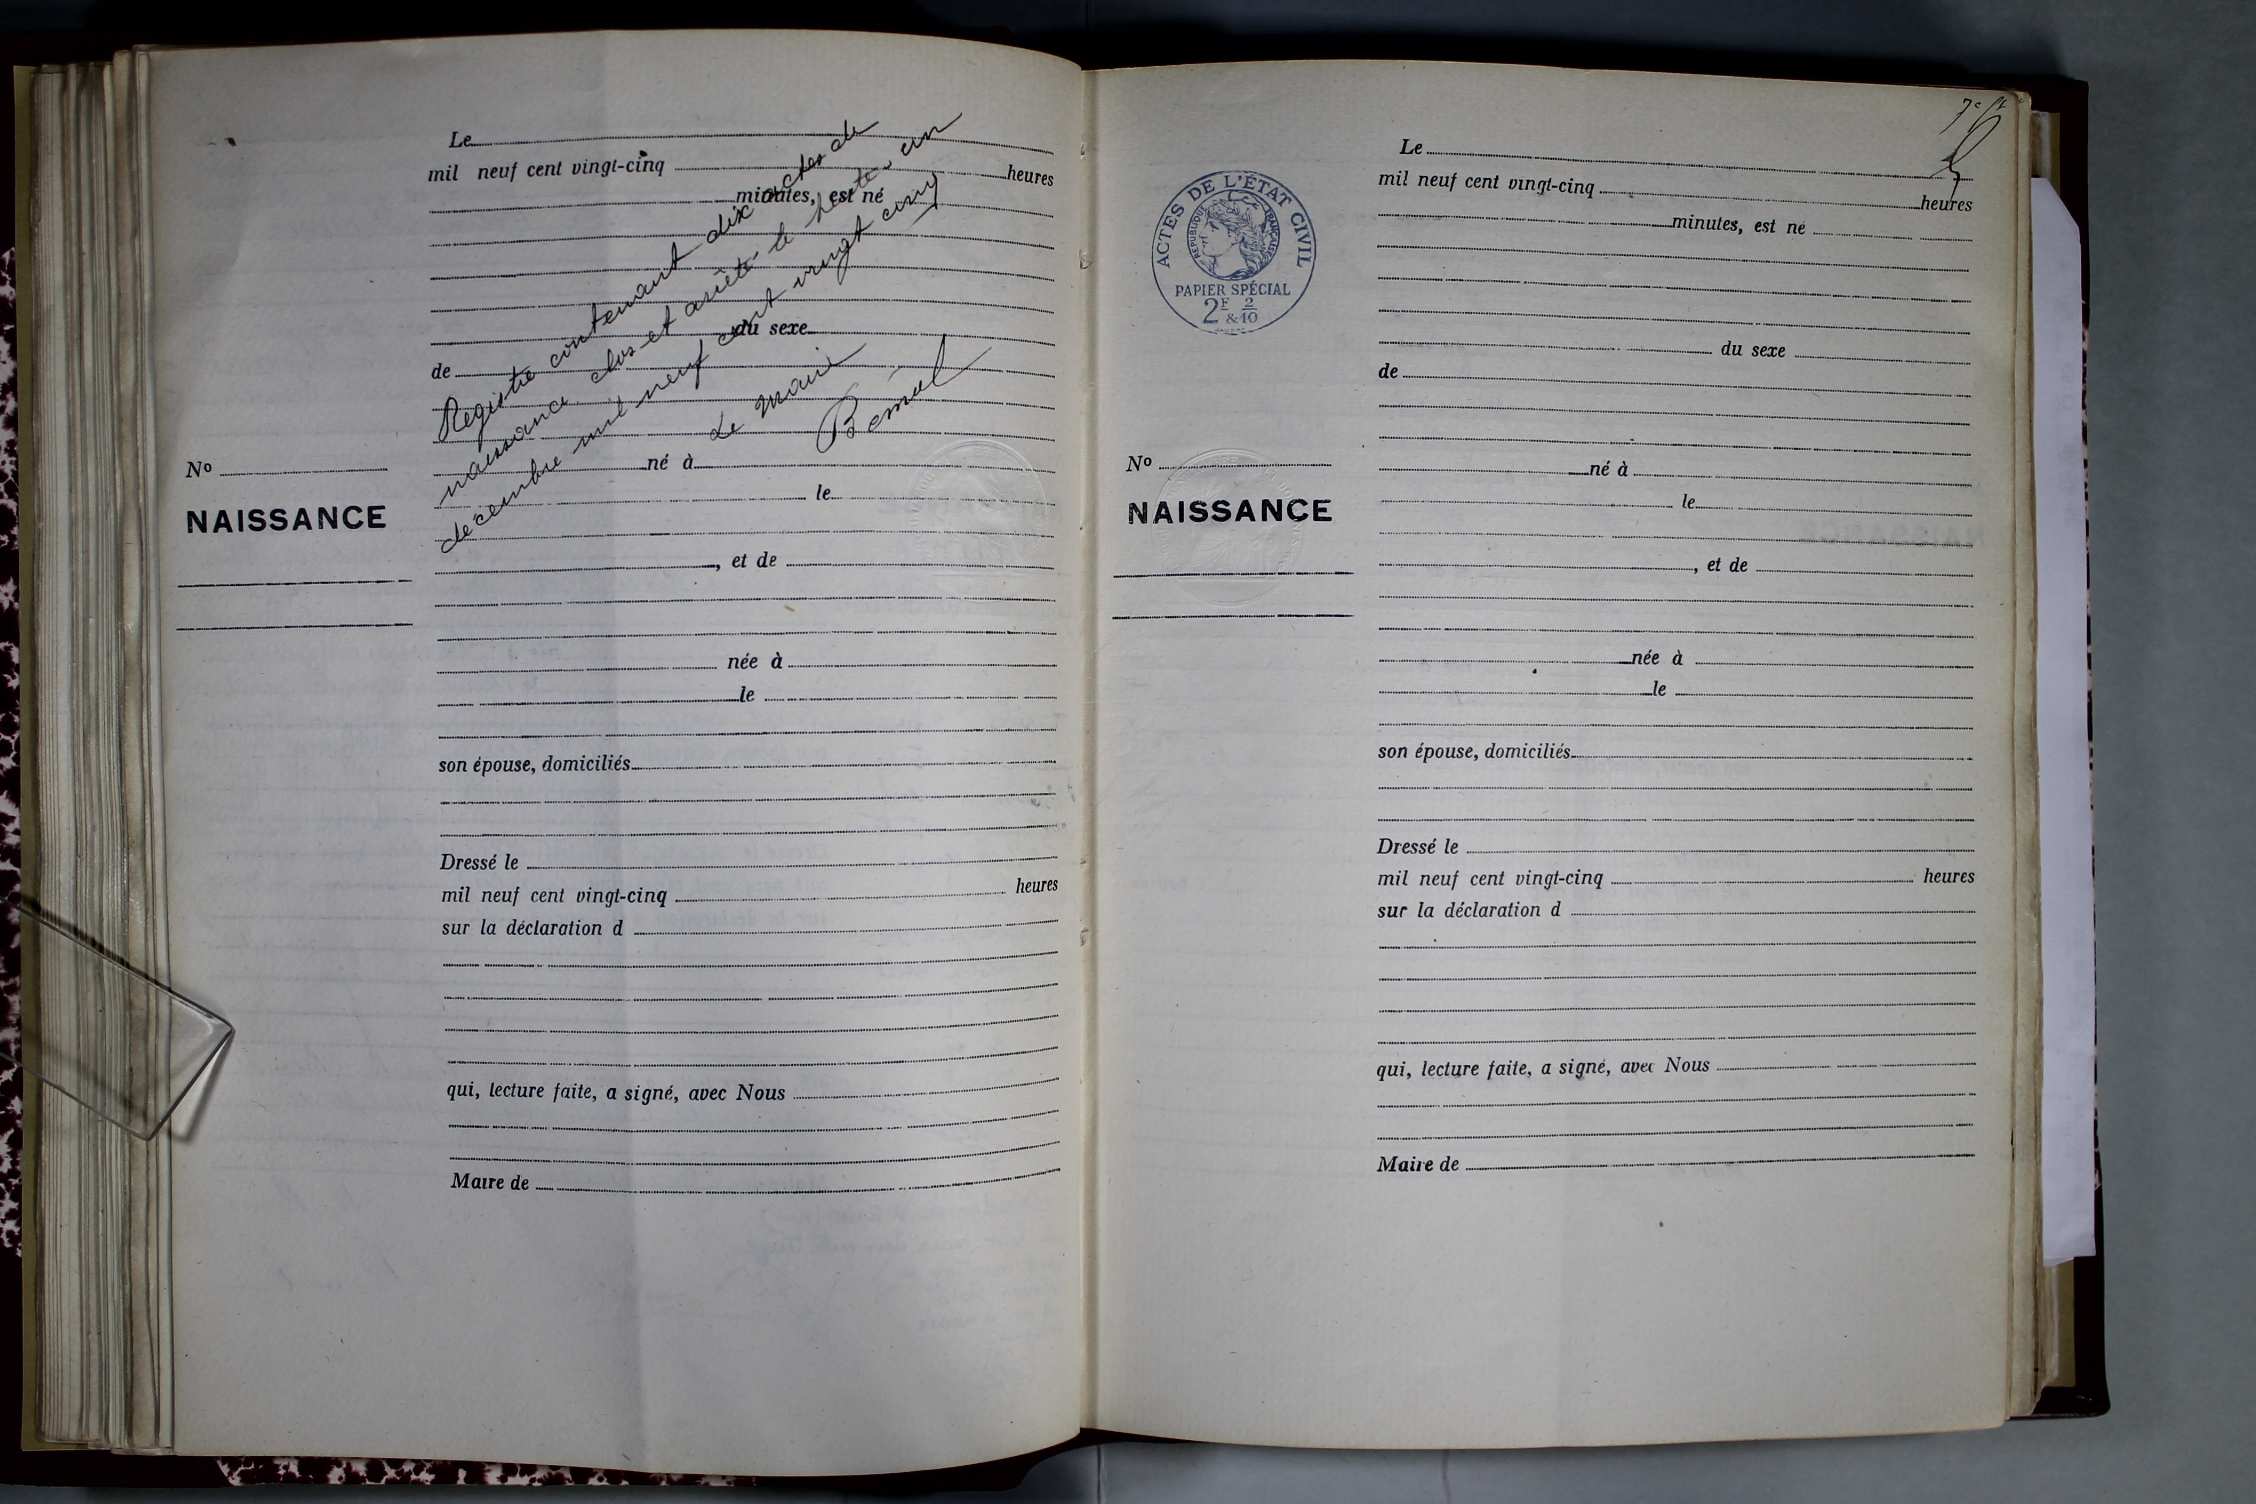 Le
mil neuf cent vingt-cinq heures
minutes, est né
du sexe
de
Registre contenant dix actes de
naissance clos et arrêté le trente-un
décembre mil neuf cent vingt cinq
Le Maire
né à
le
, et de
née à
le
son épouse, domiciliés
Dressé le
mil neuf cent vingt-cinq heures
sur la déclaration d
qui, lecture faite, a signé, avec Nous
Maire de
No
NAISSANCE
7e
ACTES DE L'ÉTAT CIVIL
RÉPUBLIQUE FRANÇAISE
PAPIER SPÉCIAL
2F & 2/10
No
NAISSANCE
Le
mil neuf cent vingt-cinq heures
minutes, est né
du sexe
de
né à
le
, et de
née à
le
son épouse, domiciliés
Dressé le
mil neuf cent vingt-cinq heures
sur la déclaration d
qui, lecture faite, a signé, avec Nous
Maire de